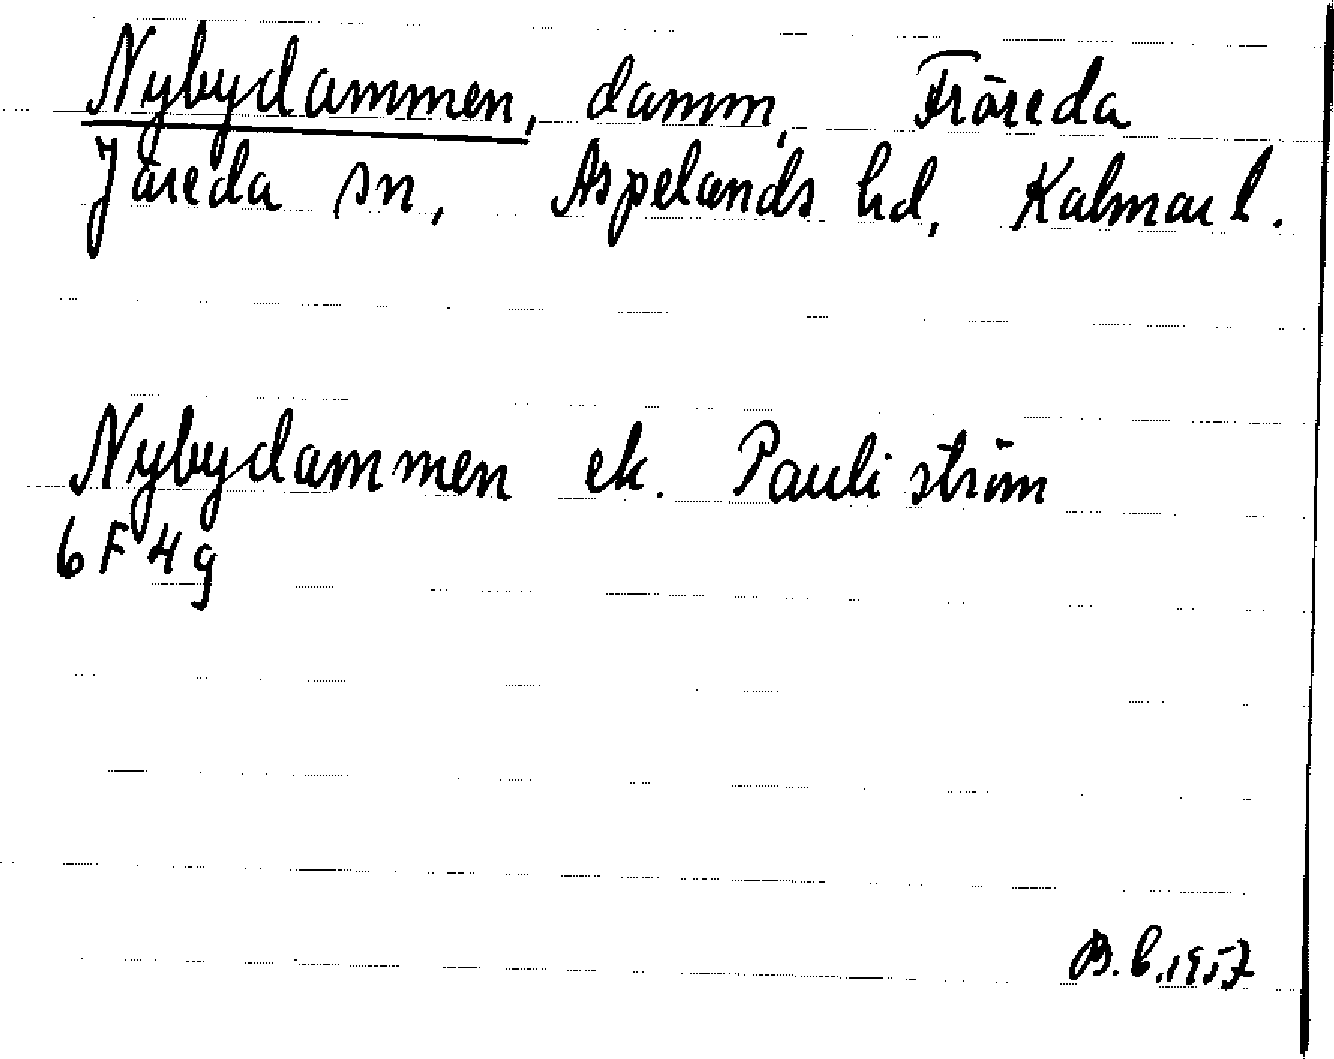 Nybydammen, damm, Fröreda
Järeda sn, Aspelands hd, Kalmar l.
Nybydammen ek. Pauliström
6F4g
B.b.1957